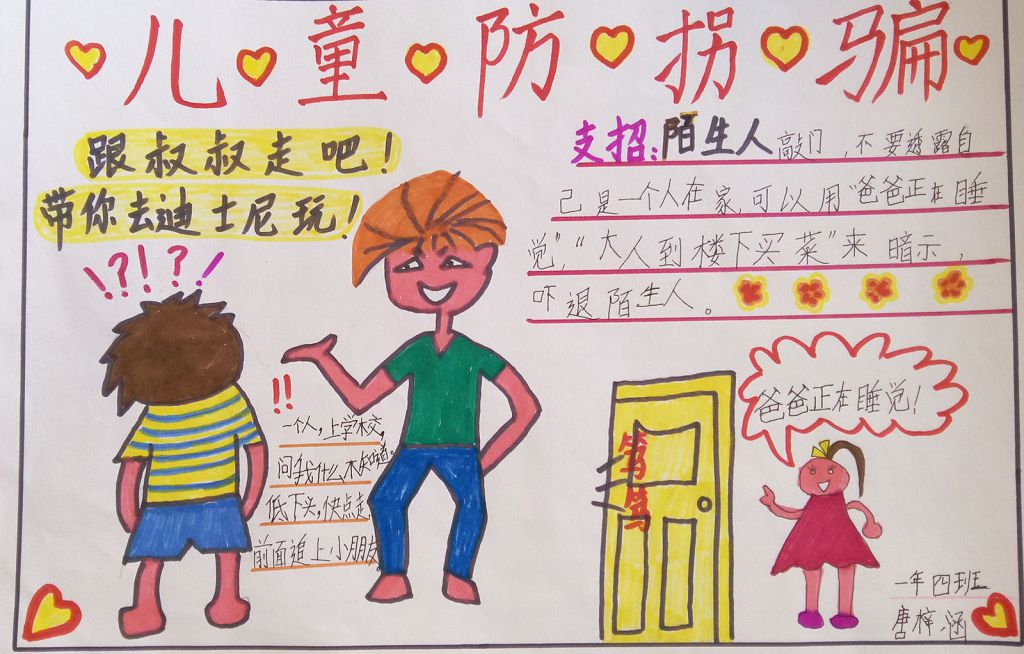 儿童防拐骗
跟叔叔走吧！
带你去迪士尼玩！
!?!?!
支招：陌生人敲门，不要透露自
己是一个人在家，可以用“爸爸正在睡
觉”，“大人到楼下买菜”来暗示，
吓退陌生人。
!!
一个人，上学校，
问我什么，不知道。
低下头，快点走，
前面追上小朋友。
笃笃
爸爸正在睡觉！
一年四班
唐梓涵